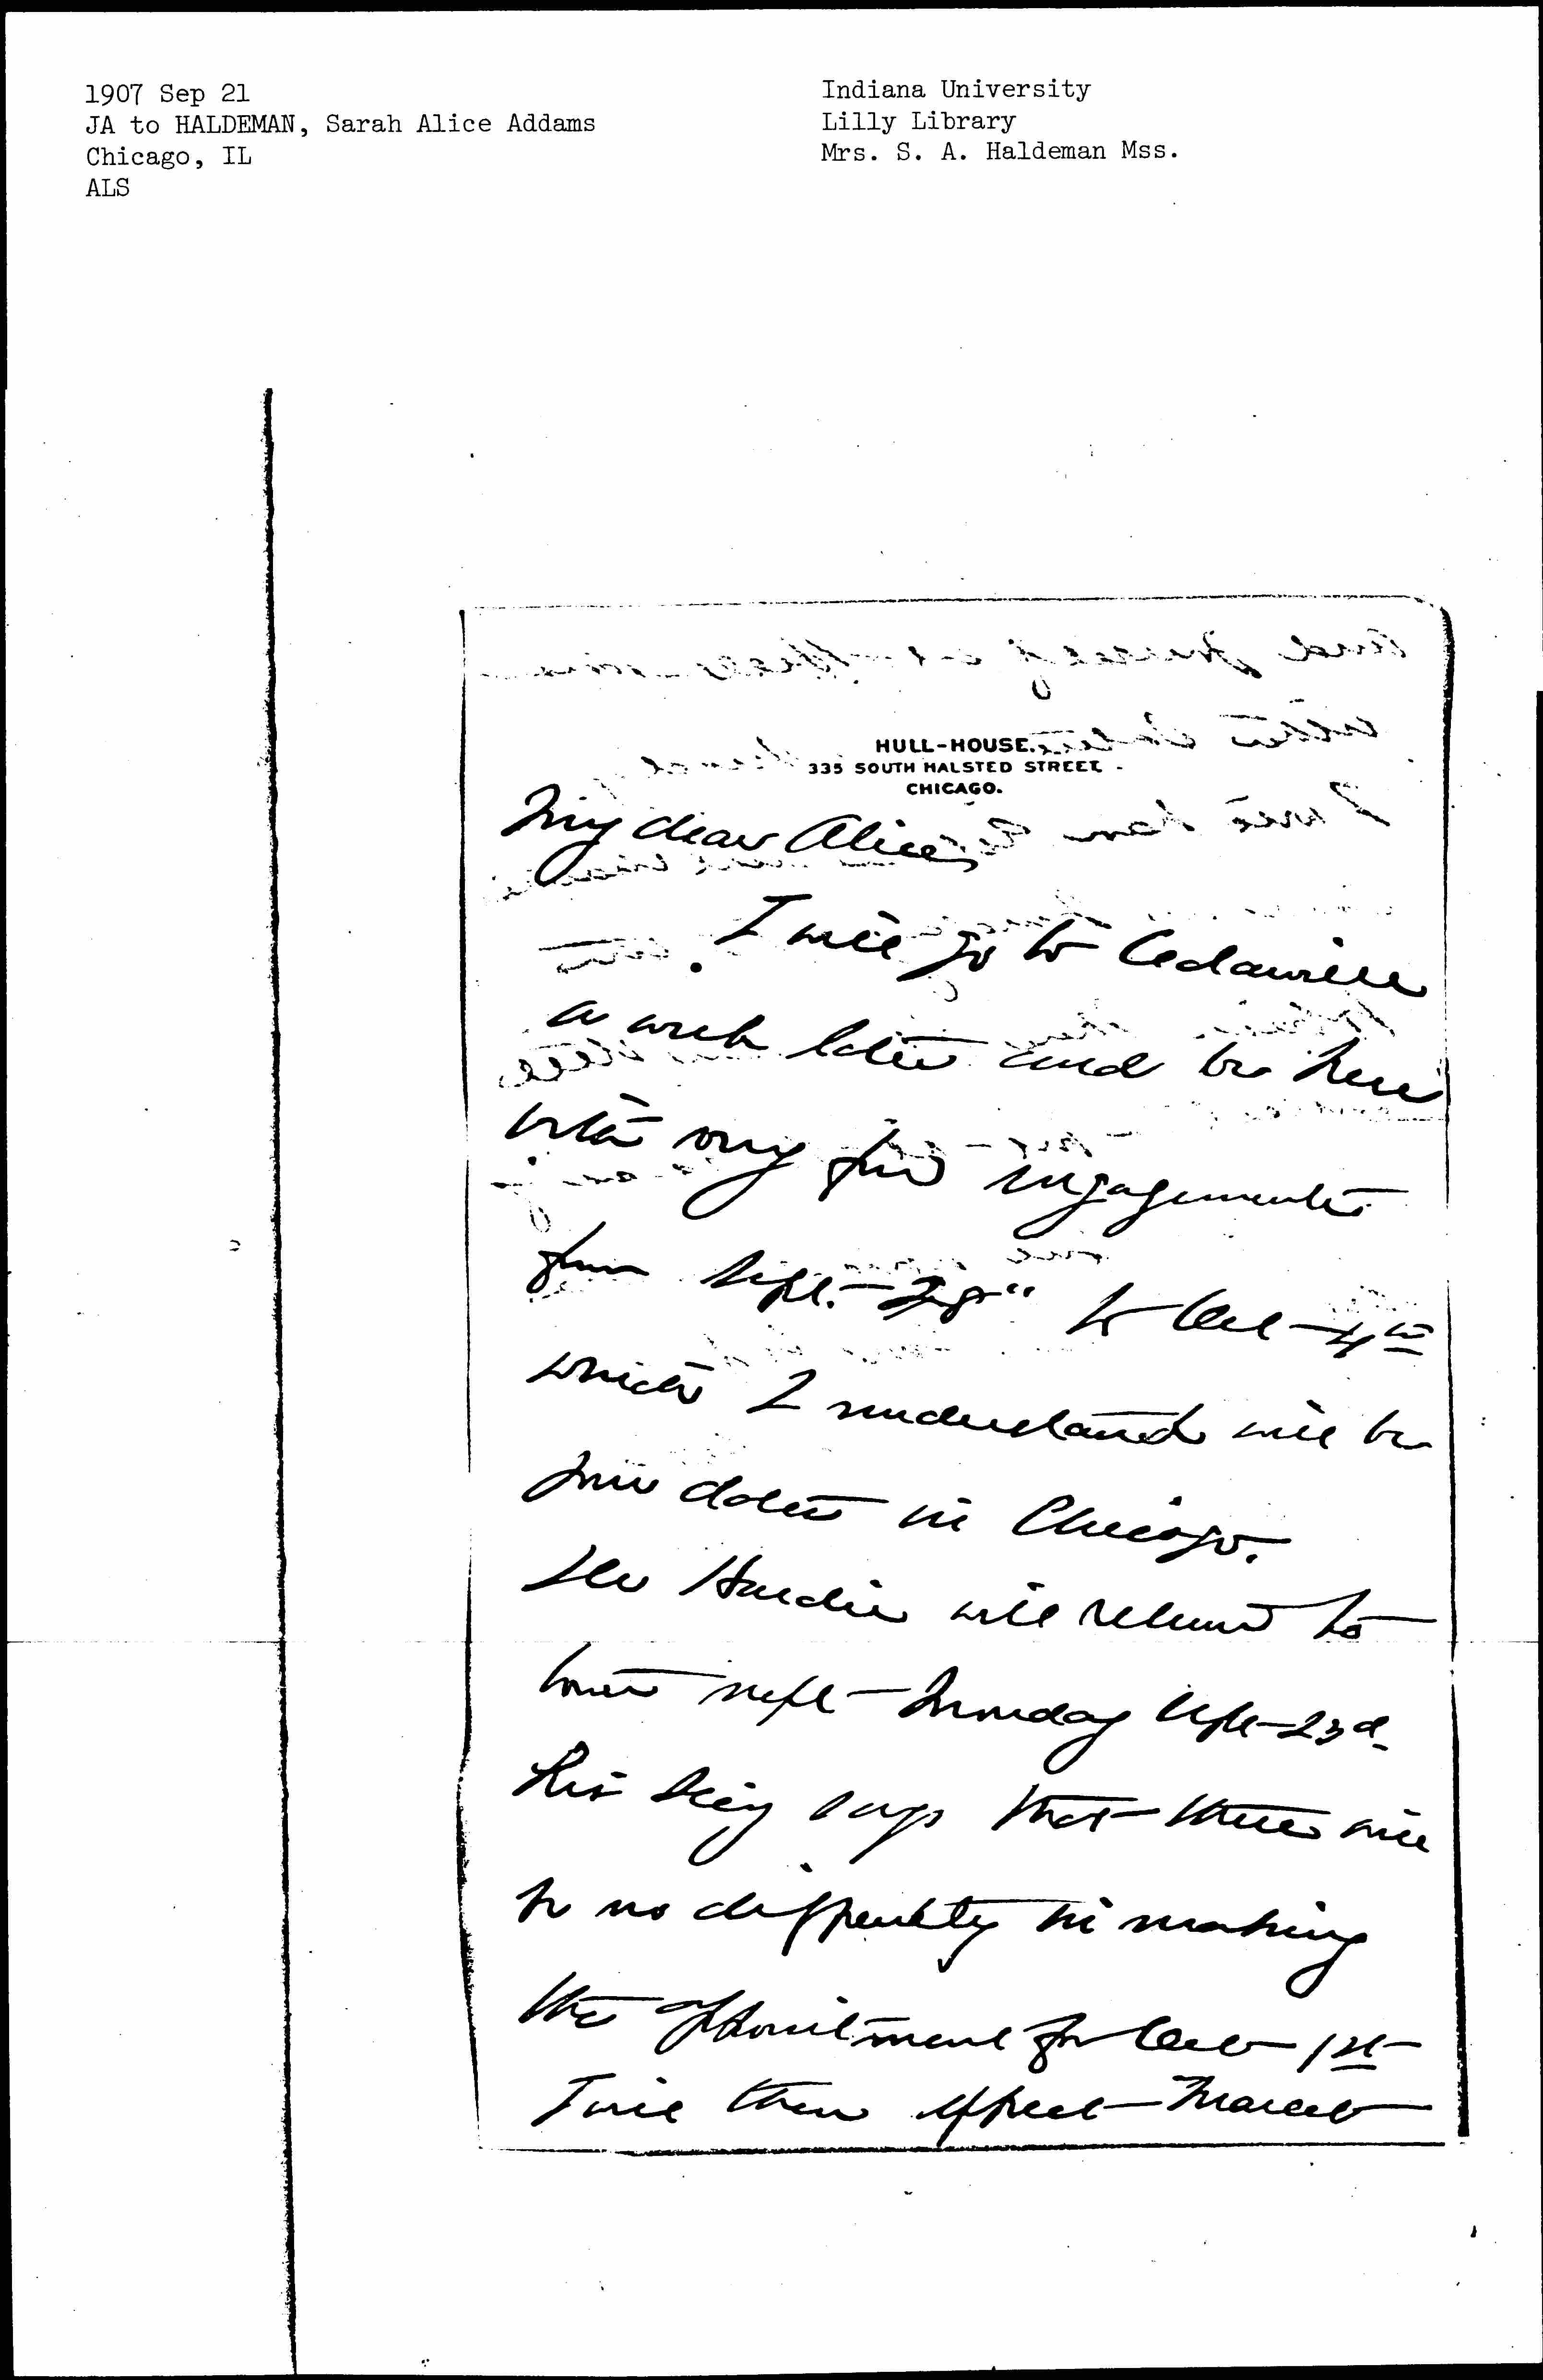 1907 Sep 21
JA to HALDEMAN, Sarah Alice Addams
Chicago, IL
ALS
Indiana University
Lilly Library
Mrs. S. A. Haldeman Mss.
HULL-HOUSE.
335 SOUTH HALSTED STREET
CHICAGO.
My dear Alice
I will go to Cedarville
a week later and be here
with very few engagements
from Sept. 28" to Oct 4th
which I understand will be
your dates in Chicago.
Dr Hardie will return to
town next Monday Sept 23d
His Sec'y says that there will
be no difficulty in making
the appointment for Oct 1st
I will then expect Marcet